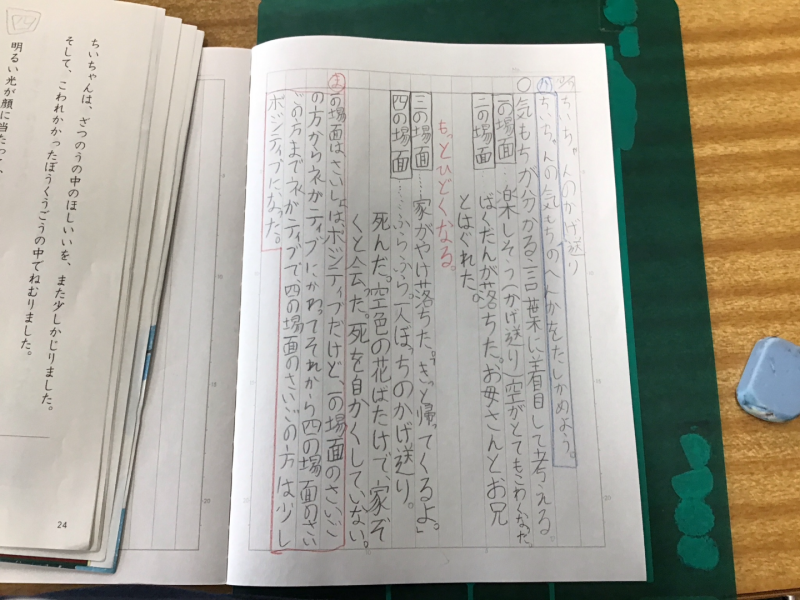 ちいちゃんのかげ送り
め ちいちゃんの気もちのへんかをたしかめよう。
○気もちが分かる言葉に着目して考える。
一の場面 楽しそう(かげ送り)空がとてもこわくなった。
二の場面 ばくだんが落ちた。お母さんとお兄
とはぐれた。
もっとひどくなる。
三の場面……家がやけ落ちた。「きっと帰ってくるよ。」
四の場面……ふらふら。一人ぼっちのかげ送り。
死んだ。空色の花ばたけで、家ぞ
くと会った。死を自かくしていない。
ま 一の場面はさいしょはポジティブだけど、一の場面のさいご
の方からネガティブにかわってそれから四の場面のさい
ごの方までネガティブで四の場面のさいごの方は少し
ポジティブになった。
ちいちゃんは、ざつのうの中のほしいいを、また少しかじりました。
そして、こわれかかったぼうくうごうの中でねむりました。
明るい光が顔に当たって、
24